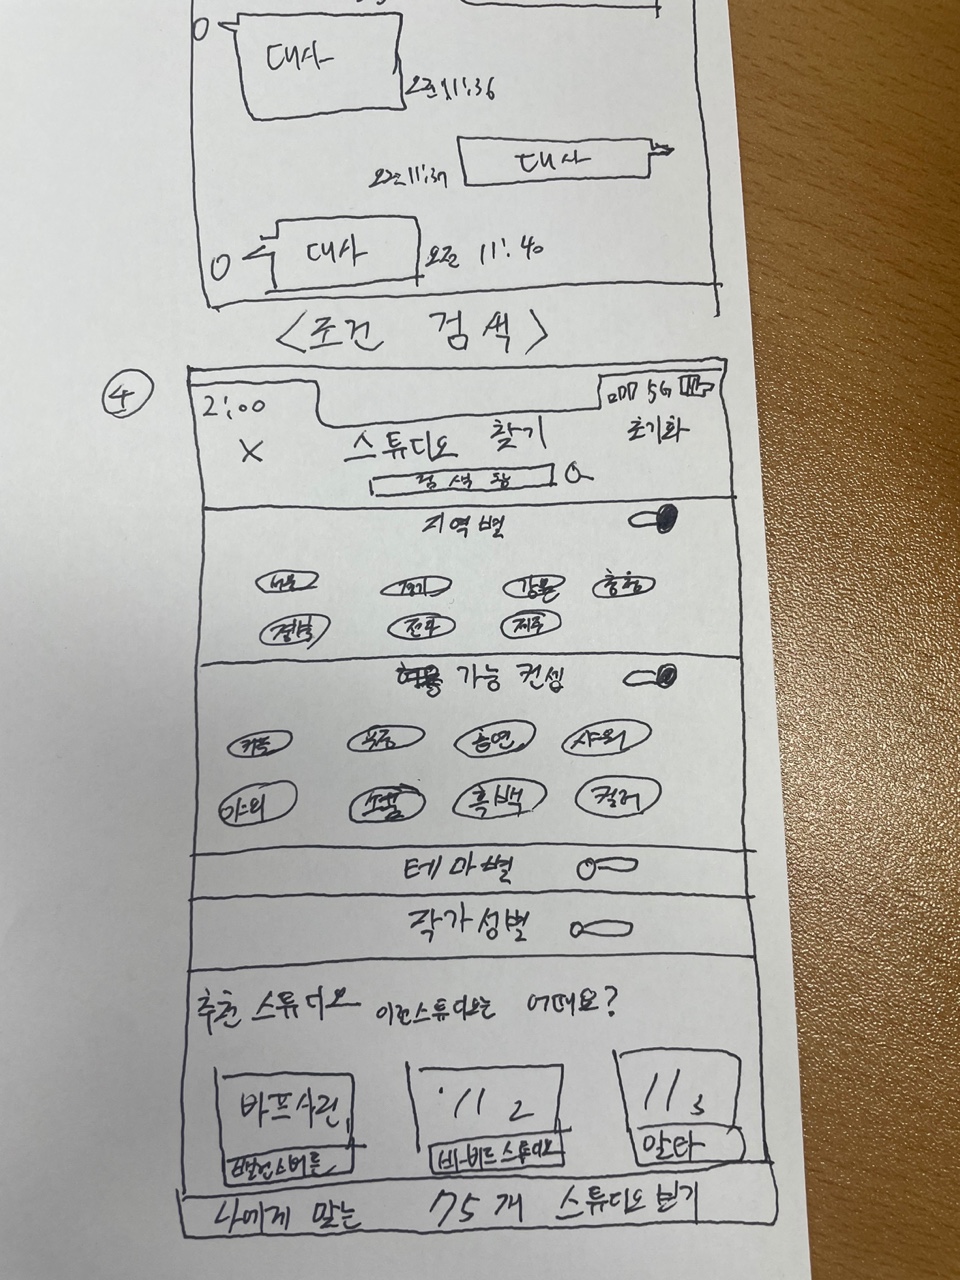 대사
오전 11:36
대사
오전 11:37
대사
오전 11:40
<조건 검색>
4
2:00 5G
X 스튜디오 찾기 초기화
검색창
지역별
서울 경기 강원 충청
경상 전라 제주
가능 컨셉
커플 흡연 샤워
야외 소품 흑백 컬러
테마별
작가성별
추천 스튜디오 이런스튜디오는 어떄요?
바프사진1 "2 "3
비비드스튜디오 말타
나에게 맞는 75개 스튜디오 보기